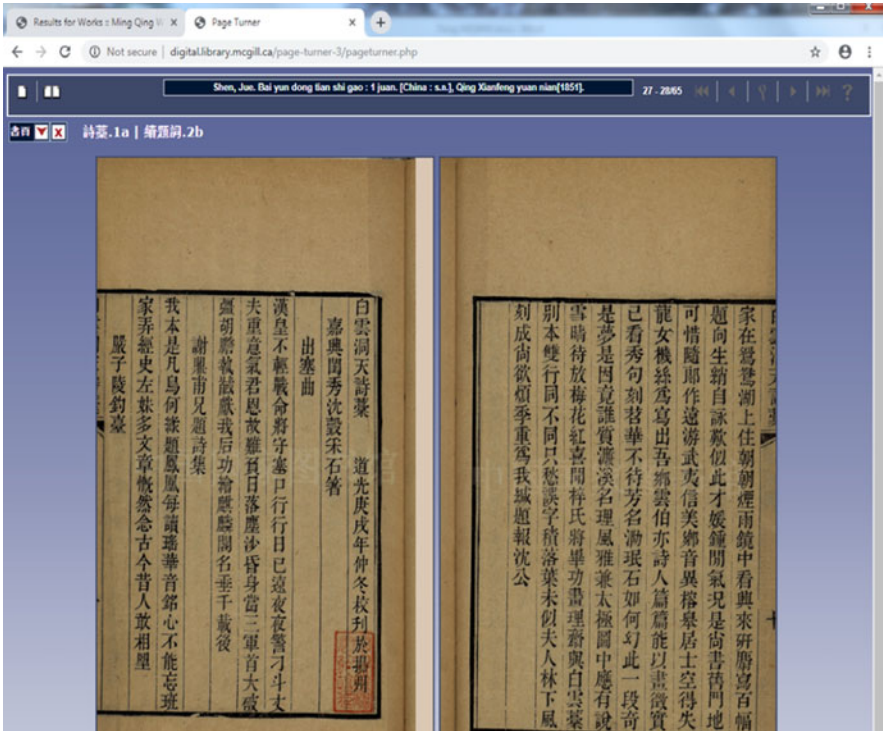 Results for Works :: Ming Qing W
Page Turner
Not secure | digital.library.mcgill.ca/page-turner-3/pageturner.php
Shen, Jue. Bai yun dong tian shi gao : 1 juan. [China : s.n.], Qing Xianfeng yuan nian[1851].
27 - 28/65
書頁
詩藁.1a | 續題詞.2b
家在鴛鴦湖上住朝朝煙雨鏡中看興來硏麝寫百幅
題向生綃自詠歎似此才媛鍾閒氣況是尚書舊門地
可惜隨郎作遠游武夷信美鄉音異榕皋居士空得失
龍女機絲爲寫出吾鄉雲伯亦詩人篇篇能以畫徵實
已看秀句刻苕華不待芳名泐珉石如何幻此一段奇
是夢是因竟誰質濂溪名理風雅兼太極圖中應有說
雪晴待放梅花紅喜聞梓氏將畢功畫理齋與白雲藁
別本雙行同不同只愁誤字積落葉未似夫人林下風
刻成尙欲煩季重爲我緘題報沈公
白雲洞天詩藁 道光庚戌年仲冬校刊於揚州
嘉興閨秀沈瑴采石著
出塞曲
漢皇不輕戰命將守塞戶行行日已遠夜夜警刁斗丈
夫重意氣君恩故難負日落塵沙昏身當三軍首大破
彊胡膽馘獻我后功論麒麟閣名垂千載後
謝巢甫兄題詩集
我本是凡鳥何緣題鳳凰每讀瑤華音銘心不能忘班
家弄經史左妹多文章慨然念古今昔人敢相望
嚴子陵釣臺